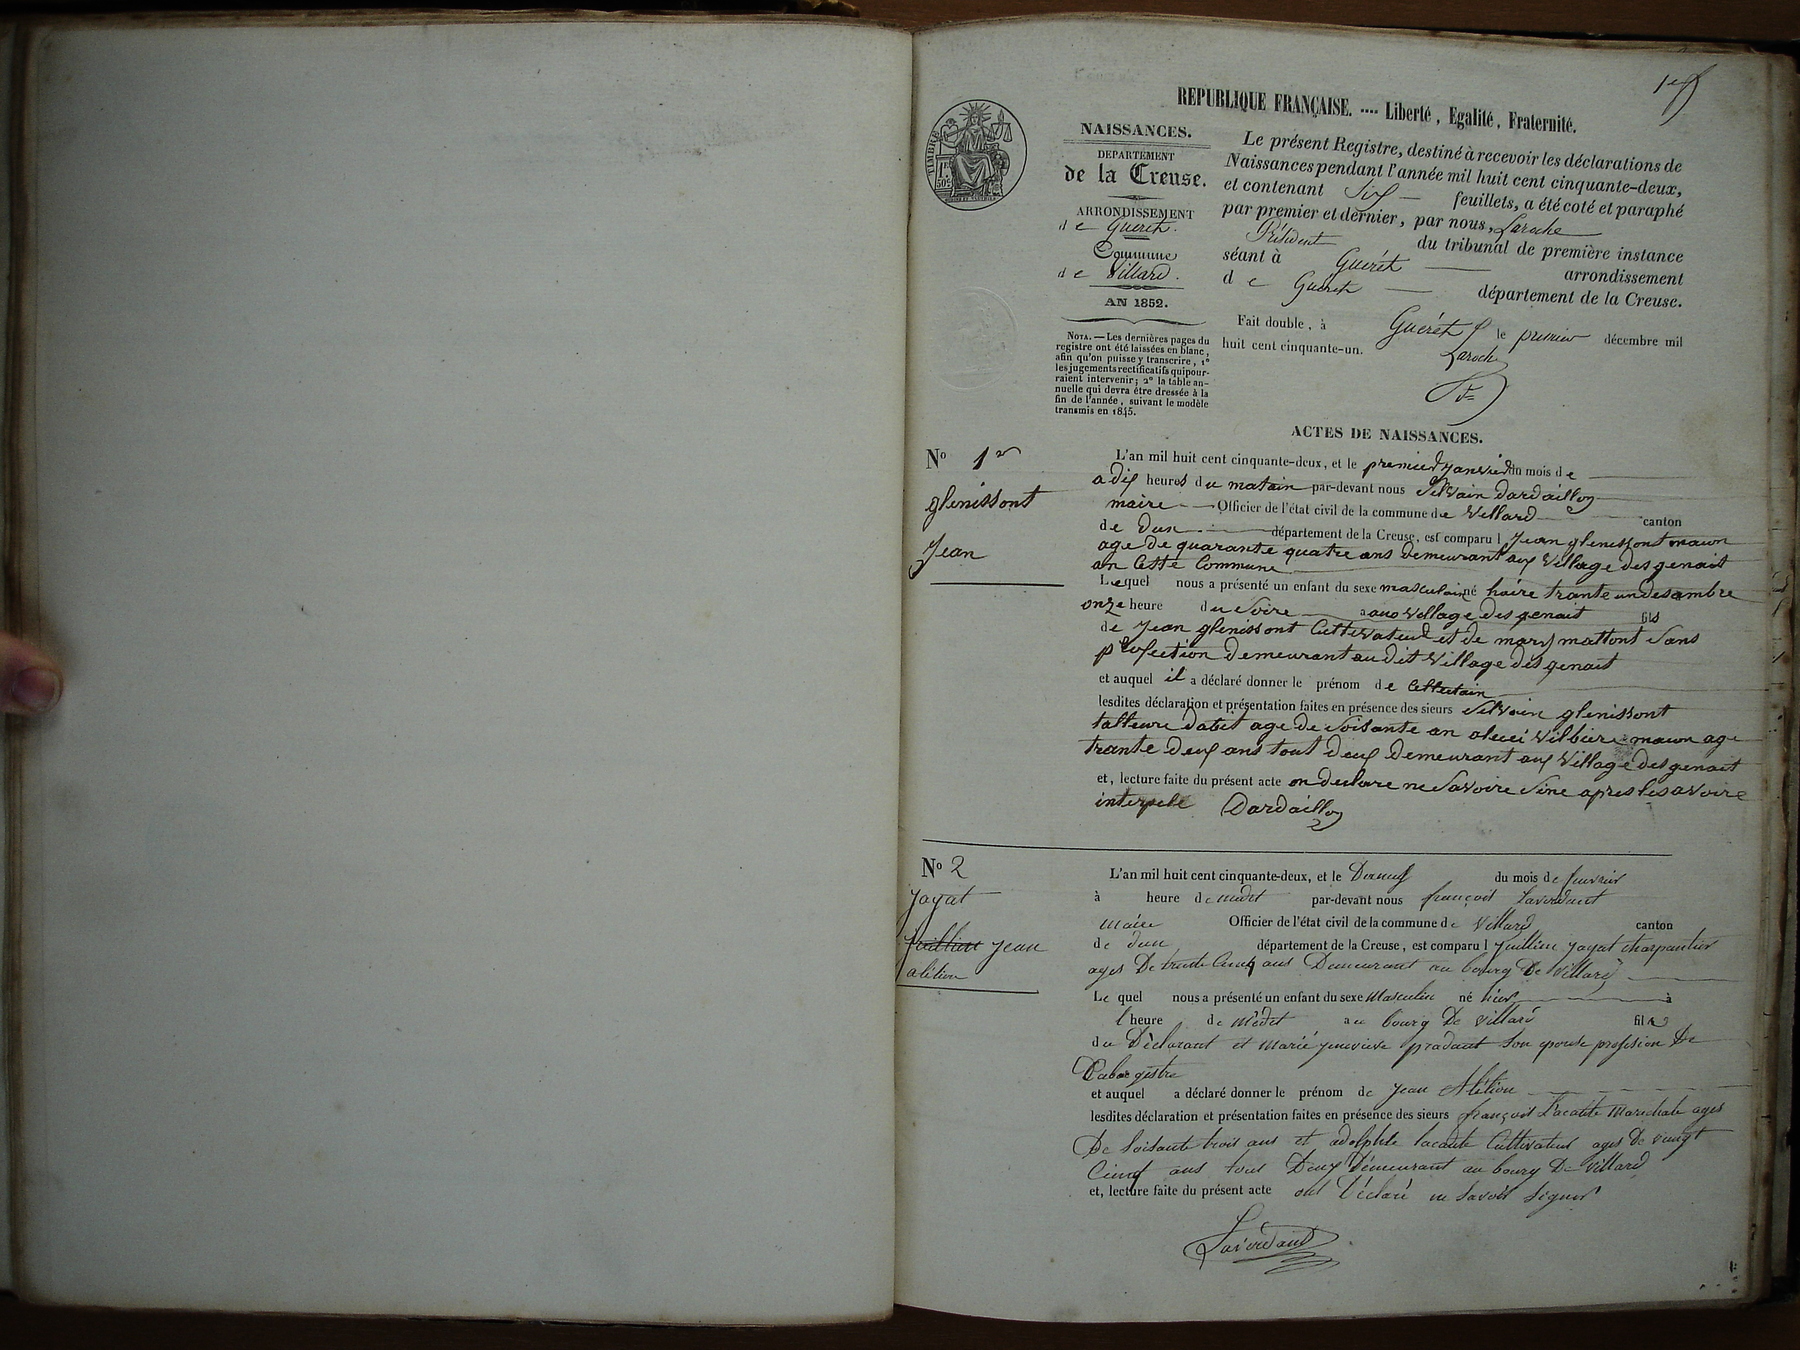 1er f
REPUBLIQUE FRANÇAISE. .... Liberté, Egalité, Fraternité.
TIMBRE
1F.
50c
NAISSANCES.
DEPARTEMENT
de la Creuse.
ARRONDISSEMENT
de Gueret.
Commune
de Villard.
AN 1852.
NOTA. — Les dernières pages du
registre ont été laissées en blanc,
afin qu'on puisse y transcrire, 1°
les jugements rectificatifs qui pour-
raient intervenir; 2° la table an-
nuelle qui devra être dressée à la
fin de l'année, suivant le modèle
transmis en 1845.
Le présent Registre, destiné à recevoir les déclarations de
Naissances pendant l'année mil huit cent cinquante-deux,
et contenant Six feuillets, a été coté et paraphé
par premier et dernier, par nous, Laroche
Président du tribunal de première instance
séant à Guerét arrondissement
de Guéret département de la Creuse.
Fait double, à Guerét le premier décembre mil
huit cent cinquante-un.
Laroche
ACTES DE NAISSANCES.
N° 1er
glenissont
Jean
L'an mil huit cent cinquante-deux, et le premier Janvier du mois de
a dix heures du matain par-devant nous Silvain Dardaillon
maire Officier de l'état civil de la commune de Villard canton
de Dun département de la Creuse, est comparu l Jean glenissont maçon
age de quarante quatre ans demeurant aux Village des genait
an Cette Commune
Lequel nous a présenté un enfant du sexe masculain né haire trante un desambre
onze heure du Soire a aux Village des genait fils
de Jean glenissont Cultivateur et de mary mattont Sans
profection demeurant au dit Village des genait
et auquel il a déclaré donner le prénom de
lesdites déclaration et présentation faites en présence des sieurs Silvain glenissont
talleure dabit age de Soisante an maçon age
trante deux ans tout deux Demeurant aux Village des genait
et, lecture faite du présent acte on declare ne Savoire Sine apres les avoire
interpelé Dardaillon
N° 2
Jayat
Juillien Jean
alélion
L'an mil huit cent cinquante-deux, et le Dixneuf du mois de fevrier
à heure de midit par-devant nous françois Laverdant
maire Officier de l'état civil de la commune de Villard canton
de dun département de la Creuse, est comparu l Juillien Jayat charpantier
ages De trente Cinq ans Demeurant au bourg De Villard
Le quel nous a présenté un enfant du sexe Masculin né hier à
l heure de Midit a au bourg De Villard fils
du Déclarant et Marie genevieve pradaut Son epouse profession De
Cabargistre
et auquel a déclaré donner le prénom de Jean Alélion
lesdites déclaration et présentation faites en présence des sieurs françois Lacatte Marechale ages
De Soisante trois ans et adolphe lacaute Cultivateur ages De vingt
Cinq ans tous Deux Demeurant au bourg De Villard
et, lecture faite du présent acte ont Déclaré ne Savoir Signer
Laverdant